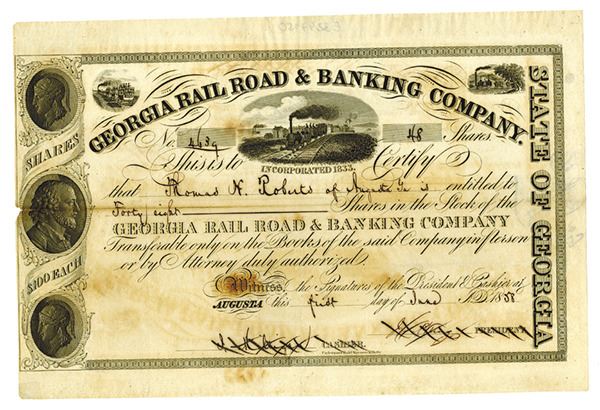 GEORGIA RAIL ROAD & BANKING COMPANY.
No. 4639 48 Shares.
INCORPORATED 1833.
This is to Certify
that Thomas N. Roberts of Augusta Ga is entitled to
Forty eight Shares in the Stock of the
GEORGIA RAIL ROAD & BANKING COMPANY
Transferable only on the Books of the said Company in person
or by Attorney duly authorized
Witness the Signatures of the President & Cashier at
AUGUSTA this first day of June 1858
CASHIER. PRESIDENT.
SHARES
$100 EACH
STATE OF GEORGIA